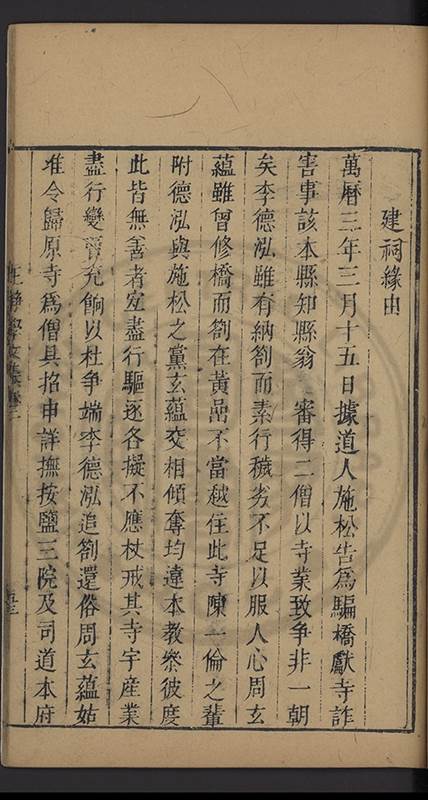 建祠緣由
萬曆三年三月十五日據道人施松告爲騙橋獻寺詐
害事該本縣知縣翁 審得二僧以寺業致爭非一朝
矣李德泓雖有納劄而素行穢劣不足以服人心周玄
蘊雖曾修橋而劄在黃嵓不當越住此寺陳一倫之輩
附德泓與施松之黨玄蘊交相傾奪均違本教叅彼度
此皆無善者宜盡行驅逐各擬不應杖戒其寺宇産業
盡行變賣充餉以杜爭端李德泓追劄還俗周玄蘊姑
准令歸原寺爲僧具招申詳撫按鹽三院及司道本府